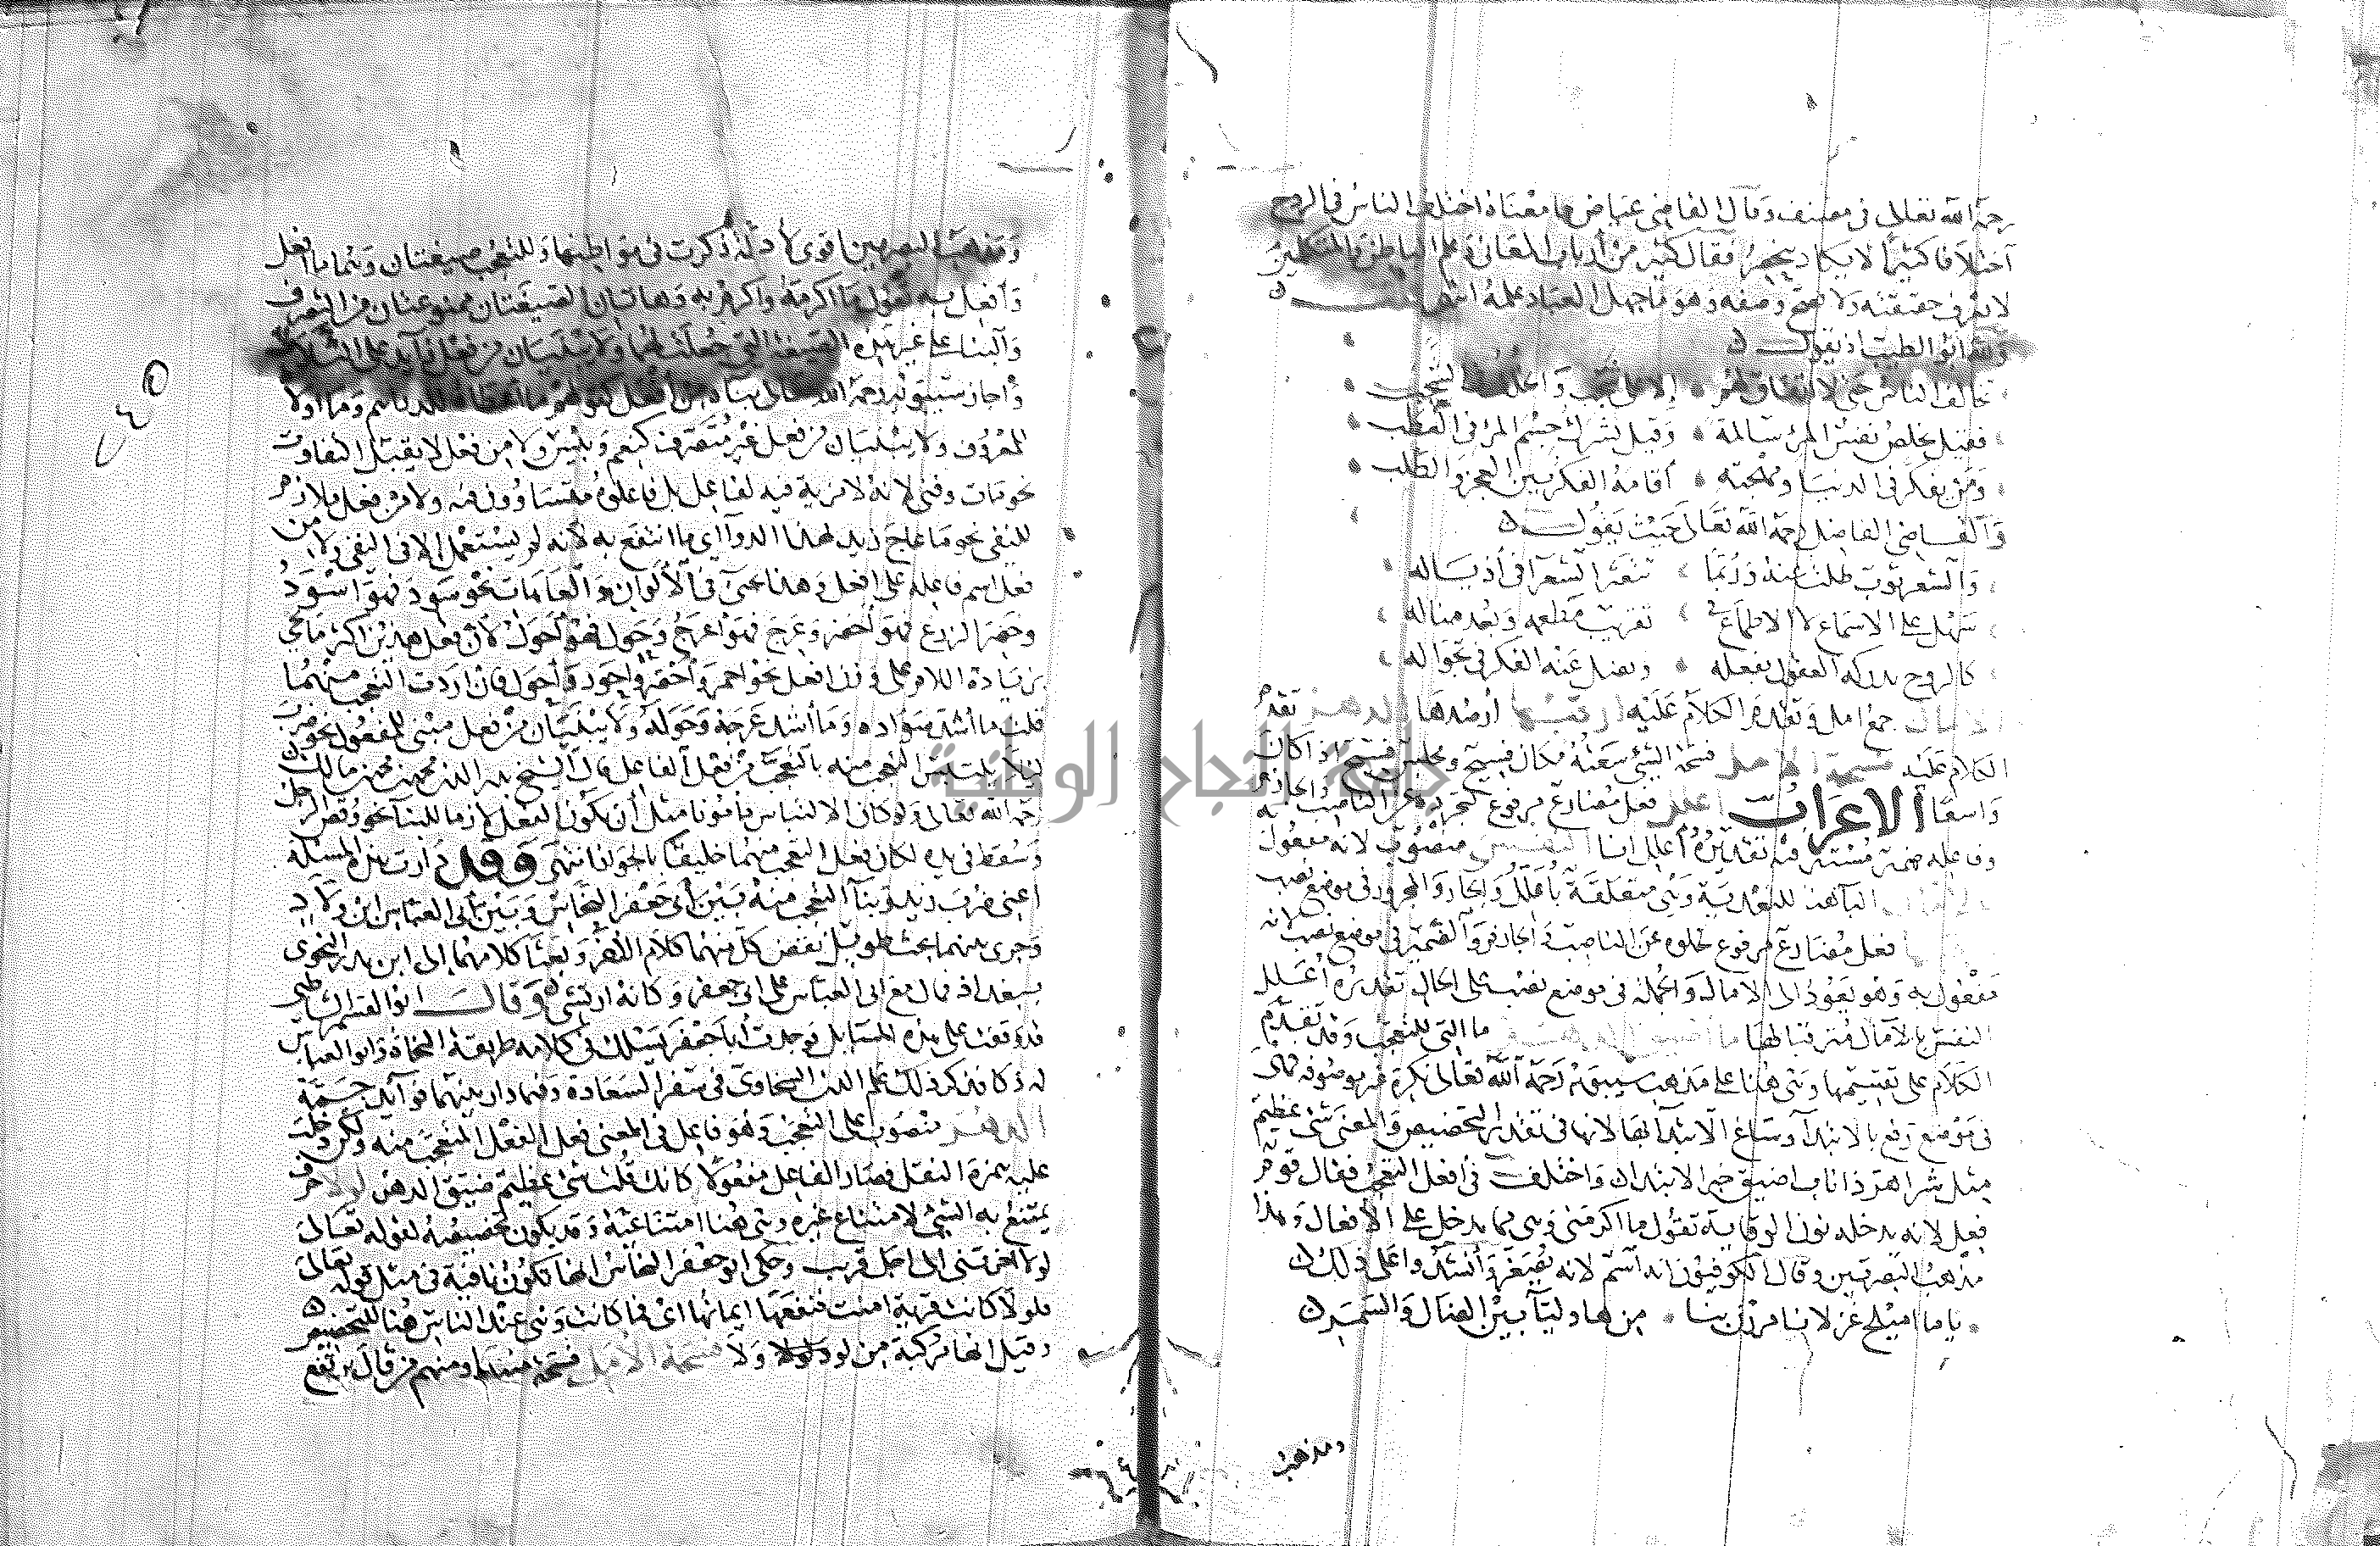 رحمه الله تعالى في مصنف وقال القاضي عياض ما معناه اختلف الناس في الروح
اختلافا كثيرا لا يكاد ينحصر فقال كثير من أرباب المعاني وعلم الباطن والمتكلمين
لا تعرف حقيقته ولا يصح وصفه وهو ما جهل العباد علمه انتهى
ولله أبو الطيب إذ يقول
تخالف الناس حتى لا اتفاق لهم إلا على شجب والخلف في الشجب
فقيل تخلص نفس المرء سالمة وقيل تشرك جسم المرء في العطب
ومن تفكر في الدنيا ومهجته أقامه الفكر بين العجز والطلب
والقاضي الفاضل رحمه الله تعالى حيث يقول
والشعر ثوب
سهل على الاسماع تقريب مطلعه وبعد مناله
كالروح يدركه العقول بفعله ويضل عنه الفكر في تجواله
الآمال جمع امل وتقدم الكلام عليه ارقبها أرصدها الدهر تقدم
الكلام عليه فسحة الامل فسحة الشيء سعته مكان فسيح ومجلس فسيح إذا كان
واسعا الإعراب أعلل فعل مضارع مرفوع لتجرده عن الناصب والجازم
وفاعله ضمير مستتر فيه تقديره أعلل انا النفس منصوب لانه مفعول به
بالآمال الباء هنا للتعدية وهي متعلقة بأعلل والجار والمجرور في موضع نصب
فعل مضارع مرفوع لخلوه عن الناصب والجازم والضمير في موضع نصب لانه
مفعول به وهو يعود الى الآمال والجملة في موضع نصب على الحال تقديره أعلل
النفس بالآمال مترقبا لها ما اضيق الدهر ما التي للتعجب وقد تقدم
الكلام على تقسيمها وهي هنا على مذهب سيبويه رحمه الله تعالى نكرة غير موصوفة
في موضع رفع بالابتدآ وساغ الابتدآ بها لانها في تقدير التخصيص والمعنى شيء عظيم
مثل شر اهر ذا ناب اضيق خبر الابتداء واختلف في أفعل التعجب فقال قوم
فعل لانه يدخله نون الوقاية تقول ما اكرمني وهي مما يدخل على الافعال وهذا
مذهب البصريين وقال الكوفيون انه اسم لانه يصغر وأنشدوا على ذلك
ياما اميلح غزلانا شدن لنا من هاوليائبين الضال والسمر
ومذهب
ومذهب البصريين اقوى لأدلة ذكرت في مواطنها وللتعجب صيغتان وهما ما افعل
وأفعل به تقول ما اكرمه واكرم به وهاتان الصيغتان ممنوعتان من التصرف
والبناء على غير هذه الصيغة التي جعلت لهما ولا يبنيان من فعل زايد على الثلاثة
وأجاز سيبويه رحمه الله تعالى بناءه من أفعل كقولهم ما اعطاه للدراهم وما أولاه
للمعروف ولا يبنيان من فعل غير متصرف كنعم وبئس ولا من فعل لا يقبل التفاوت
نحو مات وفني لانه لا مزية فيه لفاعل بل فاعلوه متساوون فيه ولا من فعل ملازم
للنفي نحو ما عاج زيد بهذا الدوآ اي ما انتفع به لأنه لم يستعمل الا في النفي ولا من
فعل اسم فاعله على افعل وهذا يجيء في الألوان والعاهات نحو سود فهو اسود
وخضر الزرع فهو أخضر وعرج فهو اعرج وحول فهو أحول لأن فعل هذين اكثر ما يجي
بزيادة اللام على وزن افعل نحو احمر وأخضر واعرج وأحول فان اردت التعجب منهما
قلت ما أشد سواده وما أشد عرجه وحوله ولا يبنيان من فعل مبني للمفعول نحو ضرب
ليلا يلتبس التعجب منه بالتعجب من فعل الفاعل قال الشيخ بدر الدين محمد بن محمد بن مالك
رحمه الله تعالى ولو كان الالتباس مأمونا مثل أن يكون الفعل لازما للبناء نحو وقص الرجل
وسقط في يده لكان فعل التعجب منهما خليقا بالجواز انتهى وقد دارت هذه المسئلة
اعني ضرب زيد وبنآ التعجب منه بين أبي جعفر النحاس وبين أبي العباس ابن ولاد
وجرى بينهما بحث طويل نقض كل منهما كلام الآخر وبعثا كلامهما إلى ابن بدر النحوي
ببغداذ فمال مع ابي العباس على ابي جعفر وكأنه ارتشى وقال ابو القسم الشاطبي
قد وقفت على هذه المسايل فوجدت أبا جعفر يسلك في كلامه طريقة النحاة وابو العباس
له ذكا قد ذكر ذلك علم الدين السخاوي في سفر السعادة وفيما دار بينهما فوآيد جمة
الدهر منصوب على التعجب وهو فاعل في المعنى فعل الفعل المتعجب منه ولكن دخلت
عليه همزة النقل فصار الفاعل مفعولا كانك قلت شيء عظيم ضيق الدهر لولا حرف
يمتنع به الشيء لامتناع غيره وهي هنا امتناعية وقد يكون تحضيضية لقوله تعالى
لولا أخرتني الى اجل قريب وحكى ابو جعفر النحاس انها تكون نافية في مثل قوله تعالى
فلولا كانت قرية امنت فنفعها ايمانها اي فما كانت وهي عند الناس هنا للتحضيض
وقيل انها مركبة من لو ولا فسحة الامل فسحة مبتدا ومنهم من قال يرتفع
جامعة النجاح الوطنية